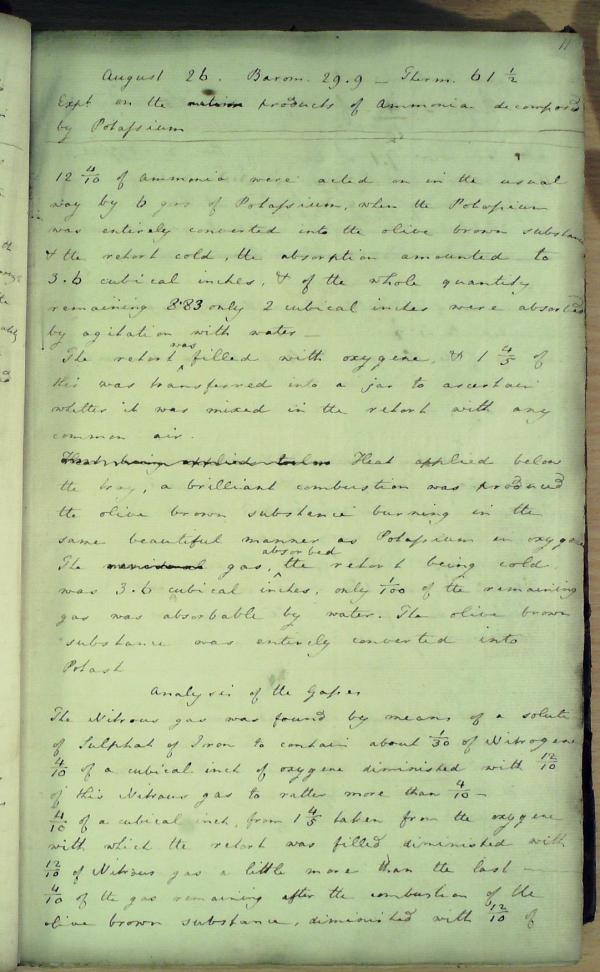 11
August 26. Barom. 29.9 — Therm. 61 1/2
Expt on the products of Ammonia decomposed
by Potassium
12 4/10 of ammonia were acted on in the usual
way by 6 grs of Potassium, when the Potassium
was entirely converted into the olive brown substance
& the retort cold, the absorption amounted to
3.6 cubical inches, & of the whole quantity
remaining 8.83 only 2 cubical inches were absorbed
by agitation with water —
The retort was filled with oxygene, & 1 4/5 of
this was transferred into a jar to ascertain
whether it was mixed in the retort with any
common air.
Heat being applied below Heat applied below
the tray, a brilliant combustion was produced
the olive brown substance burning in the
same beautiful manner as Potassium in oxygene
The gas absorbed, the retort being cold
was 3.6 cubical inches, only 1/100 of the remaining
gas was absorbable by water. The olive brown
substance was entirely converted into
Potash
Analysis of the Gasses
The Nitrous gas was found by means of a solutn
of Sulphat of Iron to contain about 1/30 of Nitrogene
4/10 of a cubical inch of oxygene diminished with 12/10
of this Nitrous gas to rather more than 4/10 —
4/10 of a cubical inch, from 1 4/5 taken from the oxygene
with which the retort was filled diminished with
12/10 of Nitrous gas a little more than the last —
4/10 of the gas remaining after the combustion of the
olive brown substance, diminished with 12/10 of